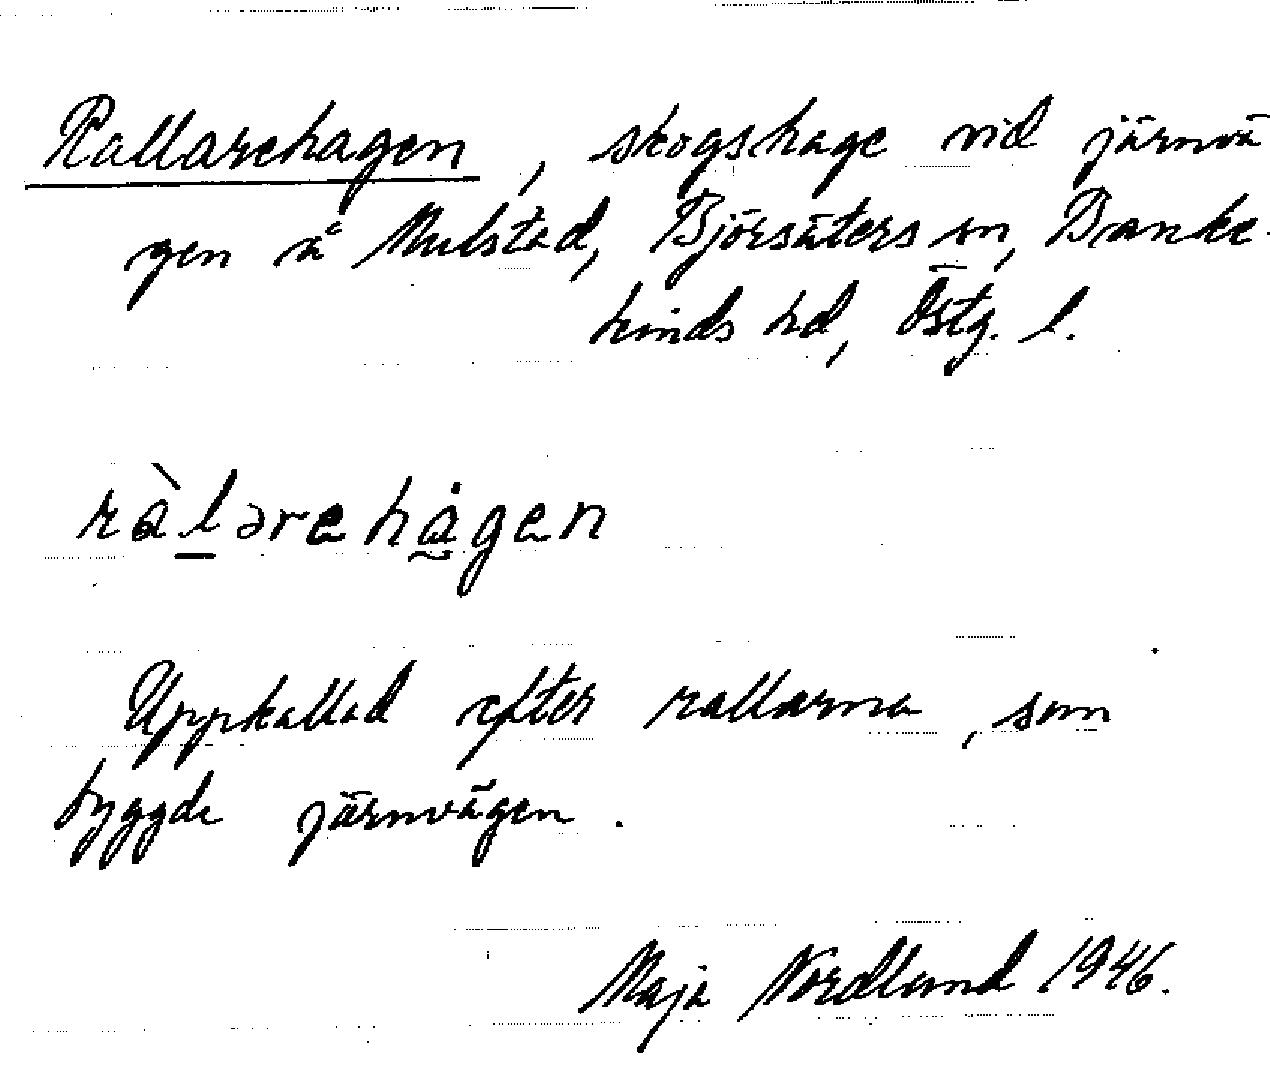 Rallarehagen, skogshage vid järnvä
gen å Mulstad, Björsäters sn, Banke-
kinds hd, Östg. l.
ràlərehågen
Uppkallad efter rallarna, som
byggde järnvägen.
Maja Nordlund 1946.